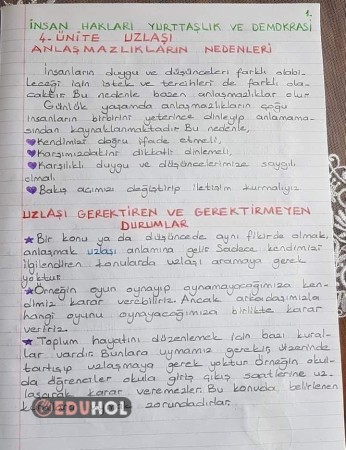 1.
İNSAN HAKLARI YURTTAŞLIK VE DEMOKRASİ
4. ÜNİTE UZLAŞI
ANLAŞMAZLIKLARIN NEDENLERİ
İnsanların duygu ve düşünceleri farklı olabi
leceği için istek ve tercihleri de farklı ola
caktır. Bu nedenle bazen anlaşmazlıklar olur.
Günlük yaşamda anlaşmazlıkların çoğu
insanların birbirini yeterince dinleyip anlamama-
sından kaynaklanmaktadır. Bu nedenle,
Kendimizi doğru ifade etmeli,
Karşımızdakini dikkatli dinlemeli,
Karşılıklı duygu ve düşüncelerimize saygılı
olmalı
Bakış açımızı değiştirip iletişim kurmalıyız
UZLAŞI GEREKTİREN VE GEREKTİRMEYEN
DURUMLAR
Bir konu ya da düşüncede aynı fikirde olmak,
anlaşmak uzlaşı anlamına gelir. Sadece kendimizi
ilgilendiren konularda uzlaşı aramaya gerek
yoktur.
Örneğin oyun oynayıp oynamayacağımıza ken-
dimiz karar verebiliriz. Ancak arkadaşımızla
hangi oyunu oynayacağımıza birlikte karar
veririz.
Toplum hayatını düzenlemek için bazı kural-
lar vardır. Bunlara uymamız gerekir, üzerinde
tartışıp uzlaşmaya gerek yoktur. Örneğin okul-
da öğrenciler okula giriş çıkış saatlerine uz-
laşarak karar veremezler. Bu konuda belirlenen
zorundadırlar.
EDUHOL